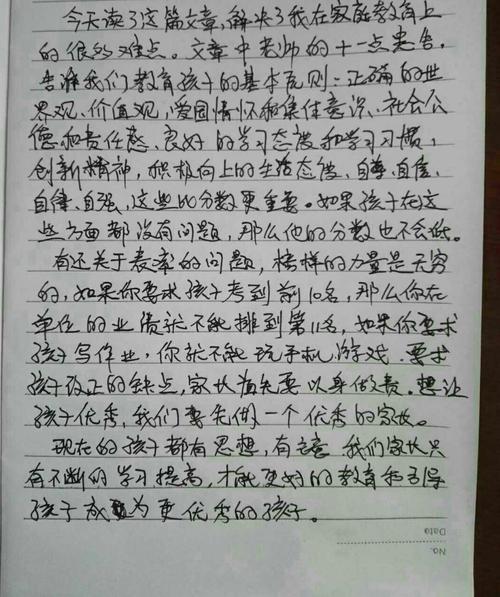 今天读了这篇文章,解决了我在家庭教育上
的很多难点。文章中老师的十一点忠告,
告诉我们教育孩子的基本原则:正确的世
界观、价值观,爱国情怀和集体意识、社会公
德和责任感、良好的学习态度和学习习惯,
创新精神,积极向上的生活态度、自尊、自信、
自律、自强,这些比分数更重要。如果孩子在这
些方面都没有问题,那么他的分数也不会低。
有还关于表率的问题,榜样的力量是无穷
的,如果你要求孩子考到前10名,那么你在
单位的业绩就不能排到第11名,如果你要求
孩子写作业,你就不能玩手机游戏.要求
孩子改正的缺点,家长首先要以身做责。想让
孩子优秀,我们要先做一个优秀的家长。
现在的孩子都有思想,有 我们家长只
有不断的学习提高,才能更好的教育和引导
孩子成为更优秀的孩子。
Date
No.